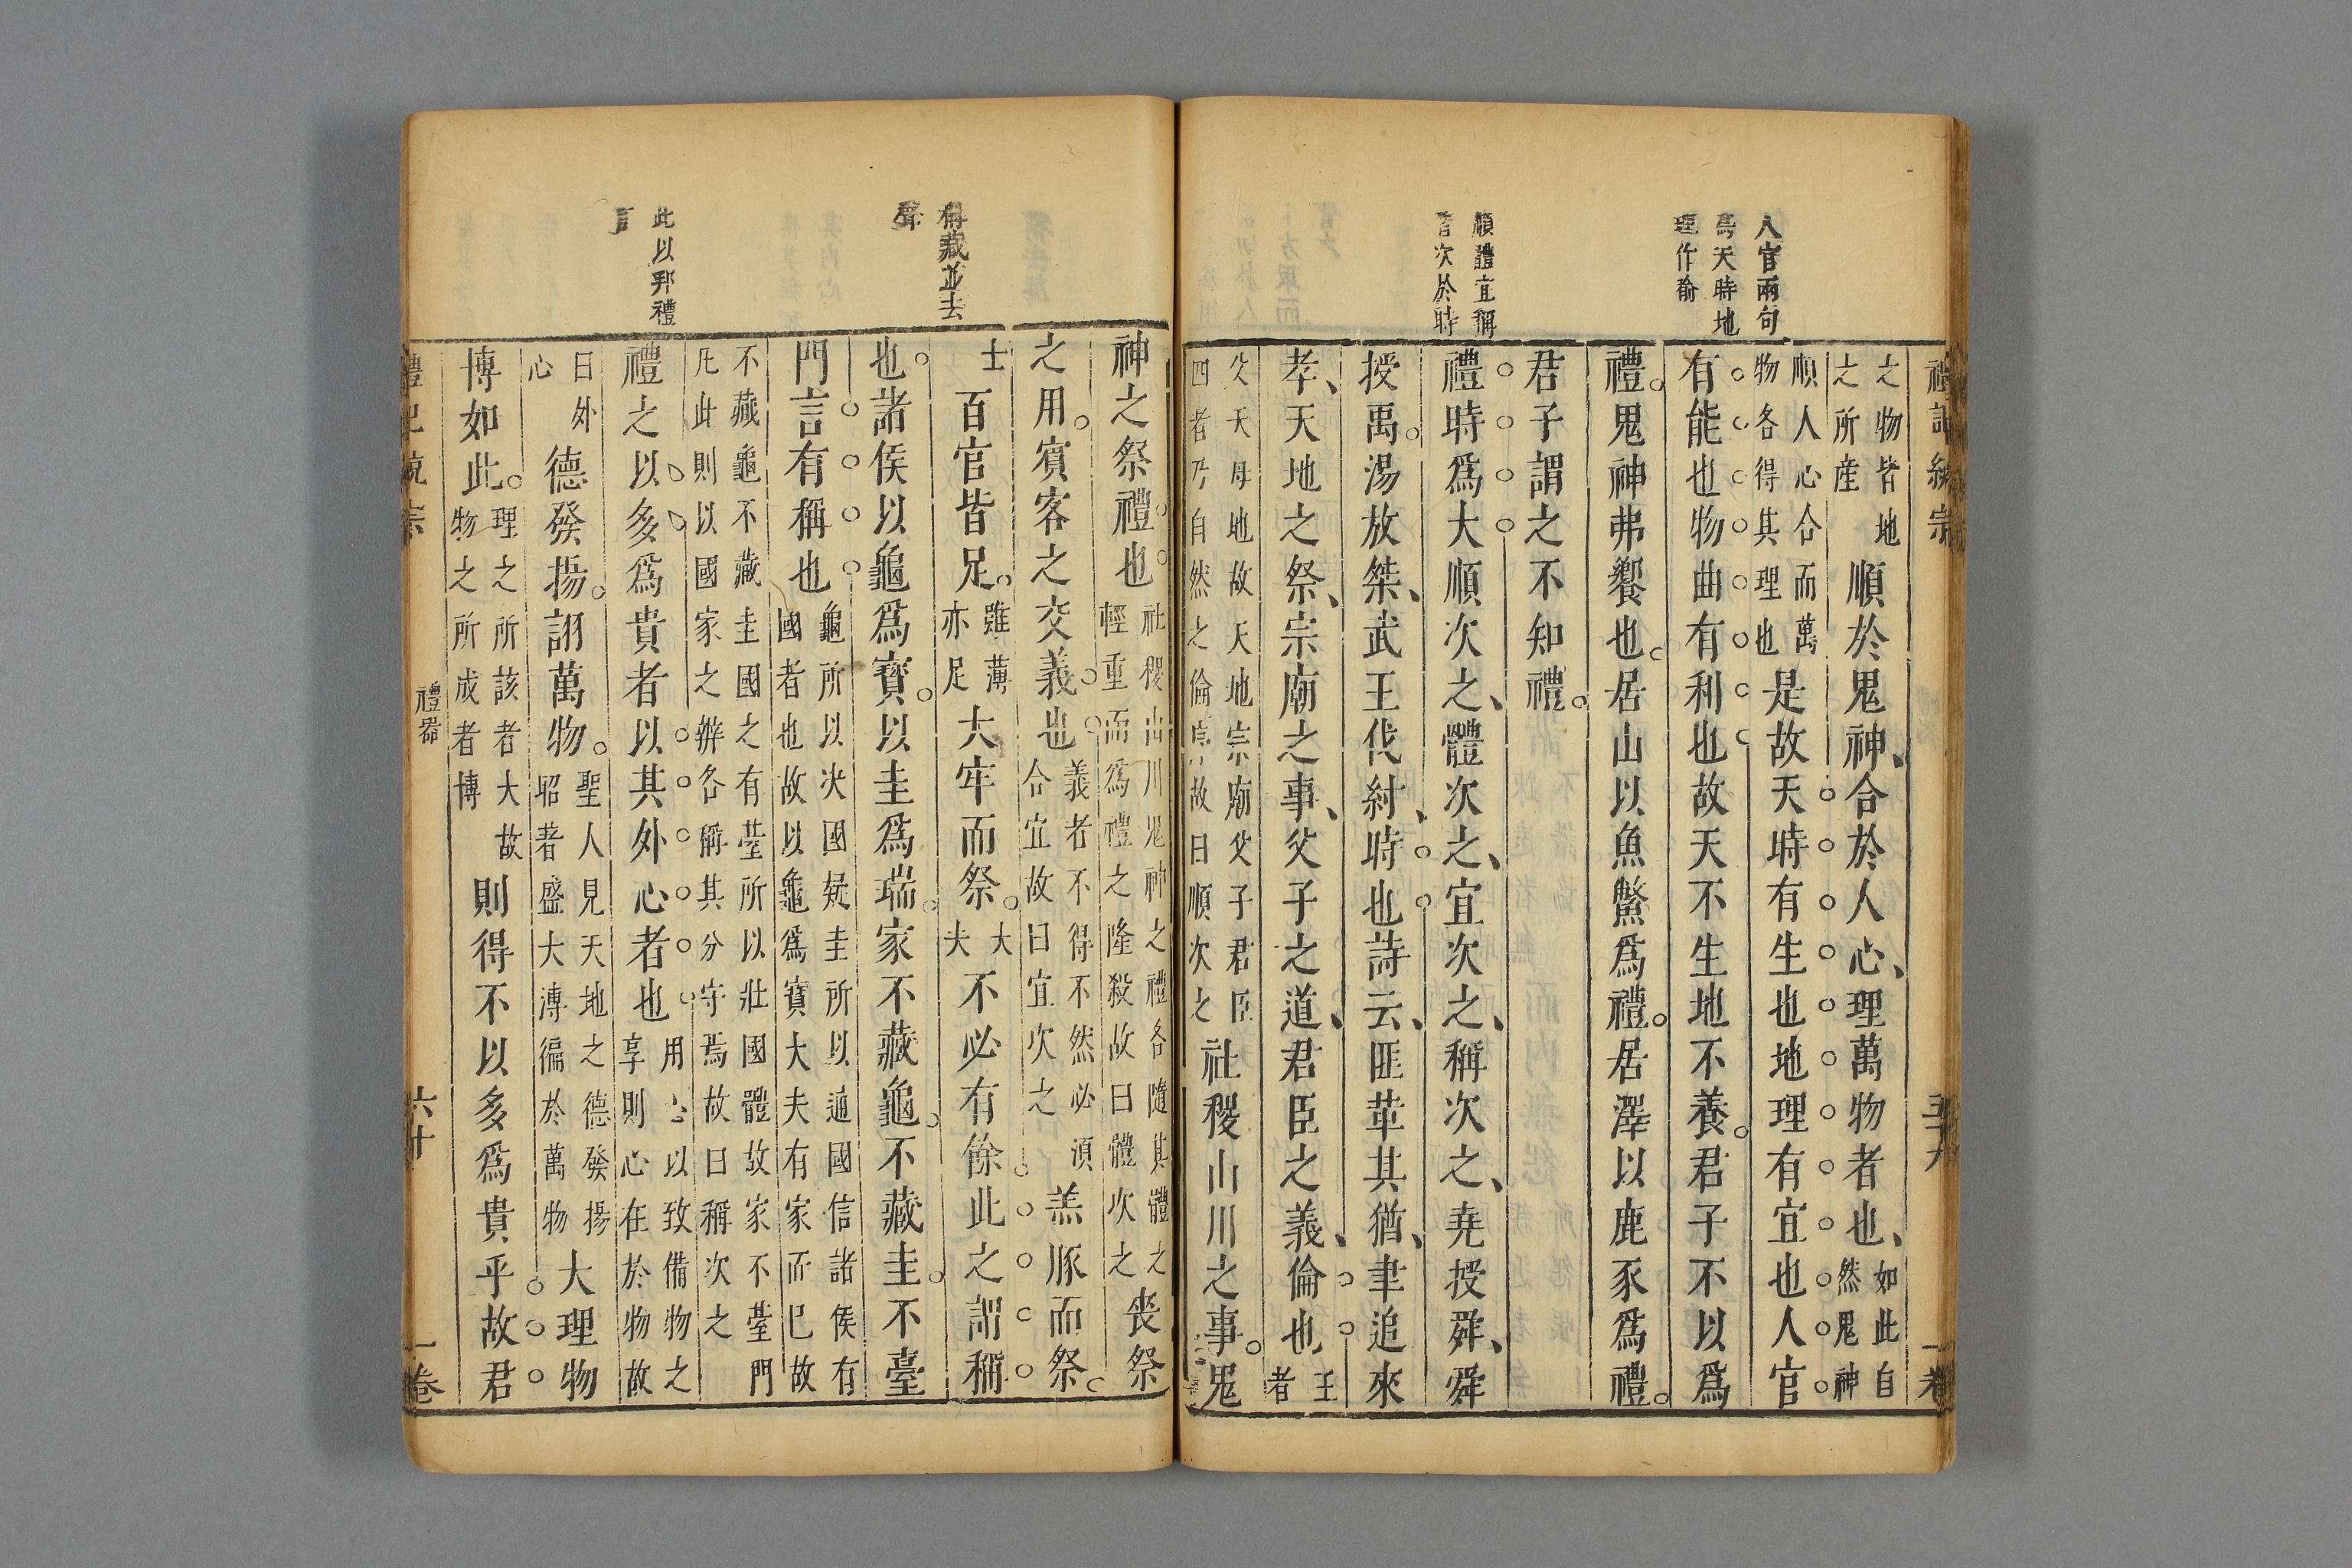 人官兩句
爲天時地
理作喻
順體宜稱
皆次於時
之物皆地
之所産
順於鬼神、合於人心、理萬物者也、
如此自
然鬼神
順人心合而萬
物各得其理也
是故天時有生也地理有宜也人官
有能也物曲有利也故天不生地不養。君子不以爲
禮。鬼神弗饗也。居山以魚鱉爲禮。居澤以鹿豕爲禮。
君子謂之不知禮。
禮時爲大順次之、體次之、宜次之、稱次之、堯授舜、舜
授禹。湯放桀、武王伐紂、時也詩云、匪革其猶、聿追來
孝、天地之祭、宗廟之事、父子之道、君臣之義、倫也
王
者
父天母地故天地宗廟父子君臣
四者乃自然之倫序故曰順次之
社稷山川之事。鬼
稱藏並去
聲
此以邦禮
言
神之祭禮。也。
社稷山川鬼神之禮各隨其體之
輕重而爲禮之隆殺故曰體次之
喪祭
之用。賓客之交義。也
義者不得不然必須
合宜故曰宜次之
羔豚而祭。
士
百官皆足。
雖薄
亦足
大牢而祭。
大
夫
不必有餘此之謂稱
也。諸侯以龜爲寶。以圭爲瑞。家不藏龜。不藏圭。不臺
門言有稱也
龜所以決國疑圭所以通國信諸侯有
國者也故以龜爲寶大夫有家而已故
不藏龜不藏圭國之有臺所以壯國體故家不臺門
凡此則以國家之辨各稱其分守焉故曰稱次之
禮之以多爲貴者以其外心者也
用心以致備物之
享則心在於物故
曰外
心
德發揚。詡萬物。
聖人見天地之德發揚
昭著盛大溥徧於萬物
大理物
博如此。
理之所該者大故
物之所成者博
則得不以多爲貴乎故君
禮器
六十
一卷